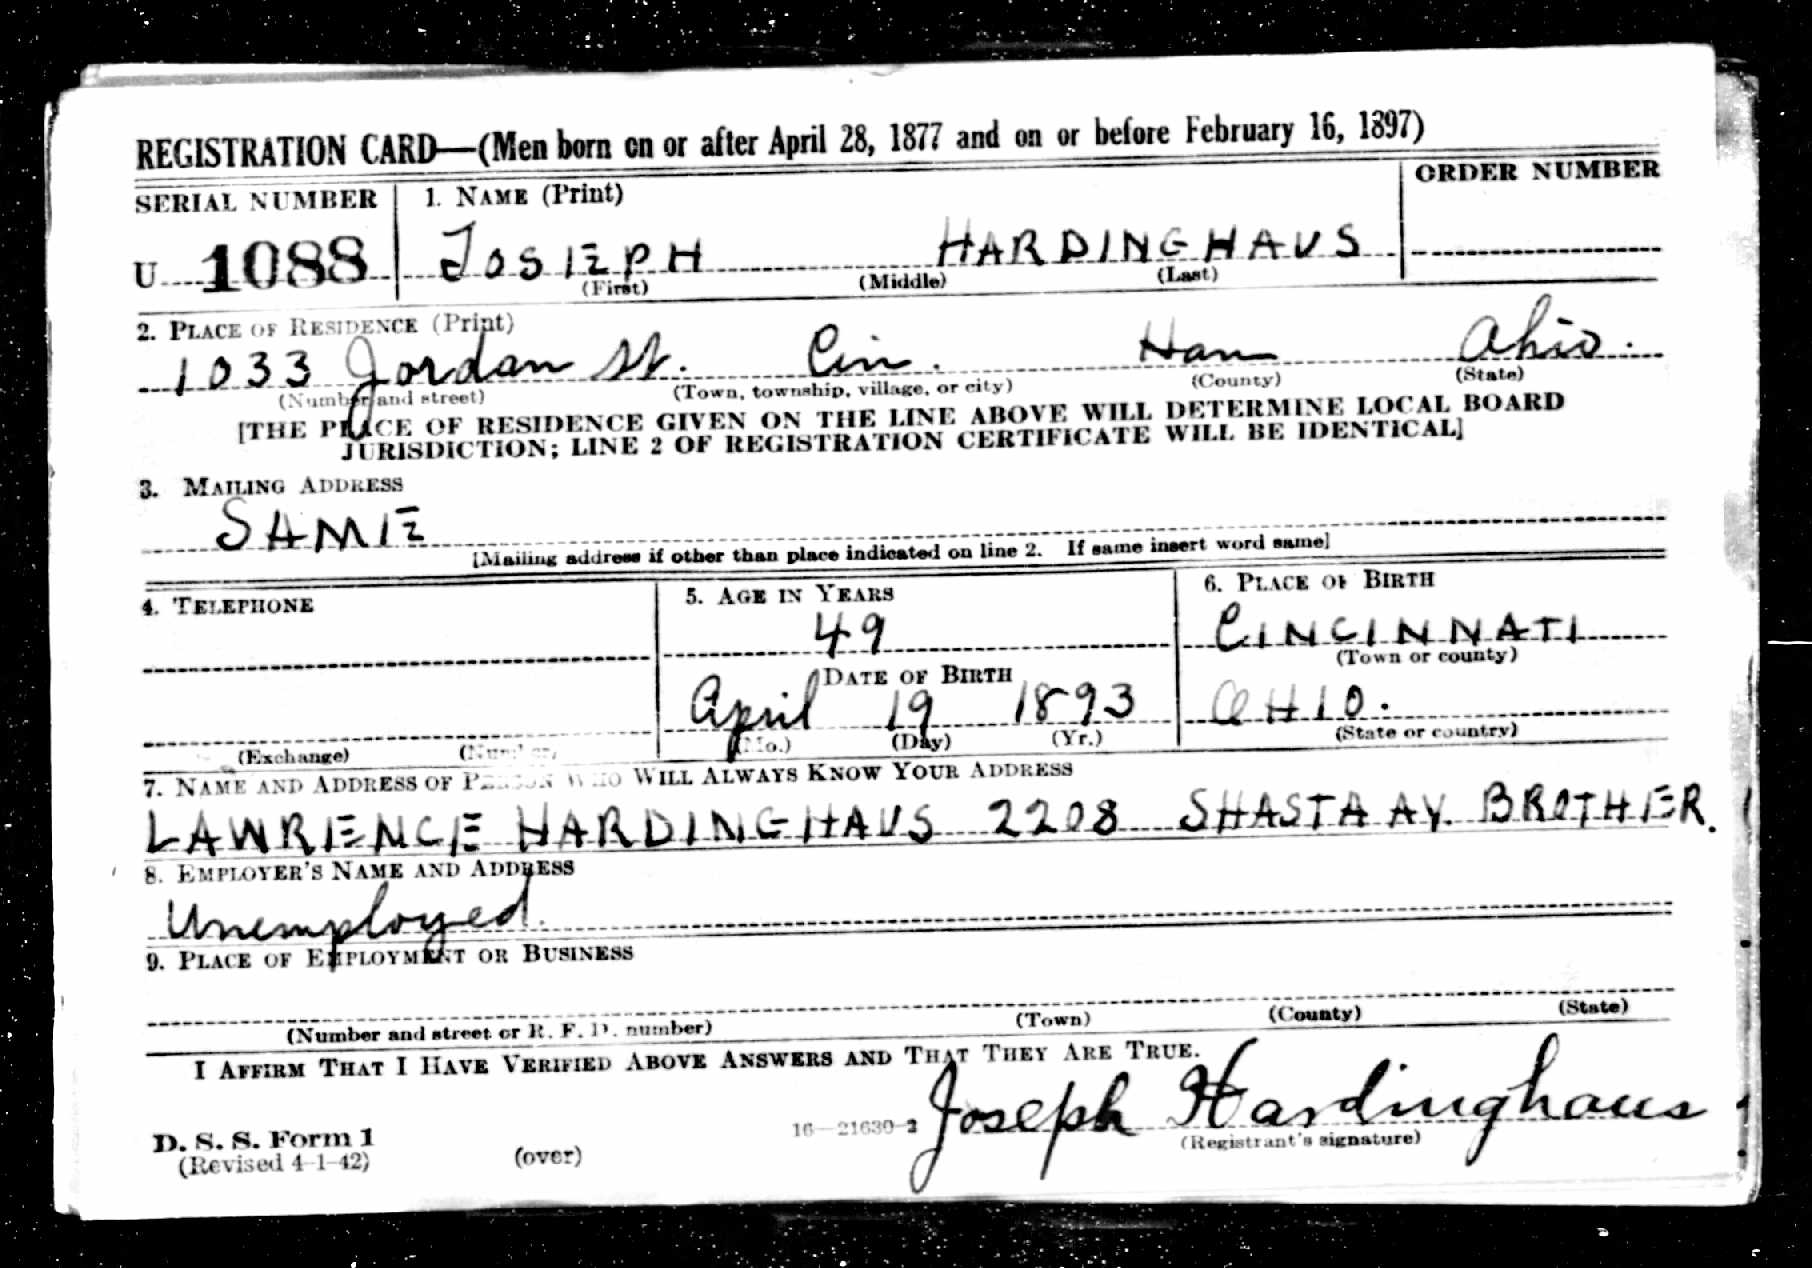 REGISTRATION CARD—(Men born on or after April 28, 1877 and on or before February 16, 1897)
SERIAL NUMBER
1. NAME (Print)
ORDER NUMBER
U 1088
JOSEPH HARDINGHAUS
(First) (Middle) (Last)
2. PLACE OF RESIDENCE (Print)
1033 Jordan St. Cin. Ham Ohio.
(Number and street) (Town, township, village, or city) (County) (State)
[THE PLACE OF RESIDENCE GIVEN ON THE LINE ABOVE WILL DETERMINE LOCAL BOARD
JURISDICTION; LINE 2 OF REGISTRATION CERTIFICATE WILL BE IDENTICAL]
3. MAILING ADDRESS
SAME
[Mailing address if other than place indicated on line 2. If same insert word same]
4. TELEPHONE
(Exchange) (Number)
5. AGE IN YEARS
49
DATE OF BIRTH
April 19 1893
(Mo.) (Day) (Yr.)
6. PLACE OF BIRTH
CINCINNATI
(Town or county)
OHIO.
(State or country)
7. NAME AND ADDRESS OF PERSON WHO WILL ALWAYS KNOW YOUR ADDRESS
LAWRENCE HARDINGHAUS 2208 SHASTA AV. BROTHER.
8. EMPLOYER'S NAME AND ADDRESS
Unemployed.
9. PLACE OF EMPLOYMENT OR BUSINESS
(Number and street or R. F. D. number) (Town) (County) (State)
I AFFIRM THAT I HAVE VERIFIED ABOVE ANSWERS AND THAT THEY ARE TRUE.
Joseph Hardinghaus
D. S. S. Form 1
(Revised 4-1-42) (over) 16—21630-2 (Registrant's signature)